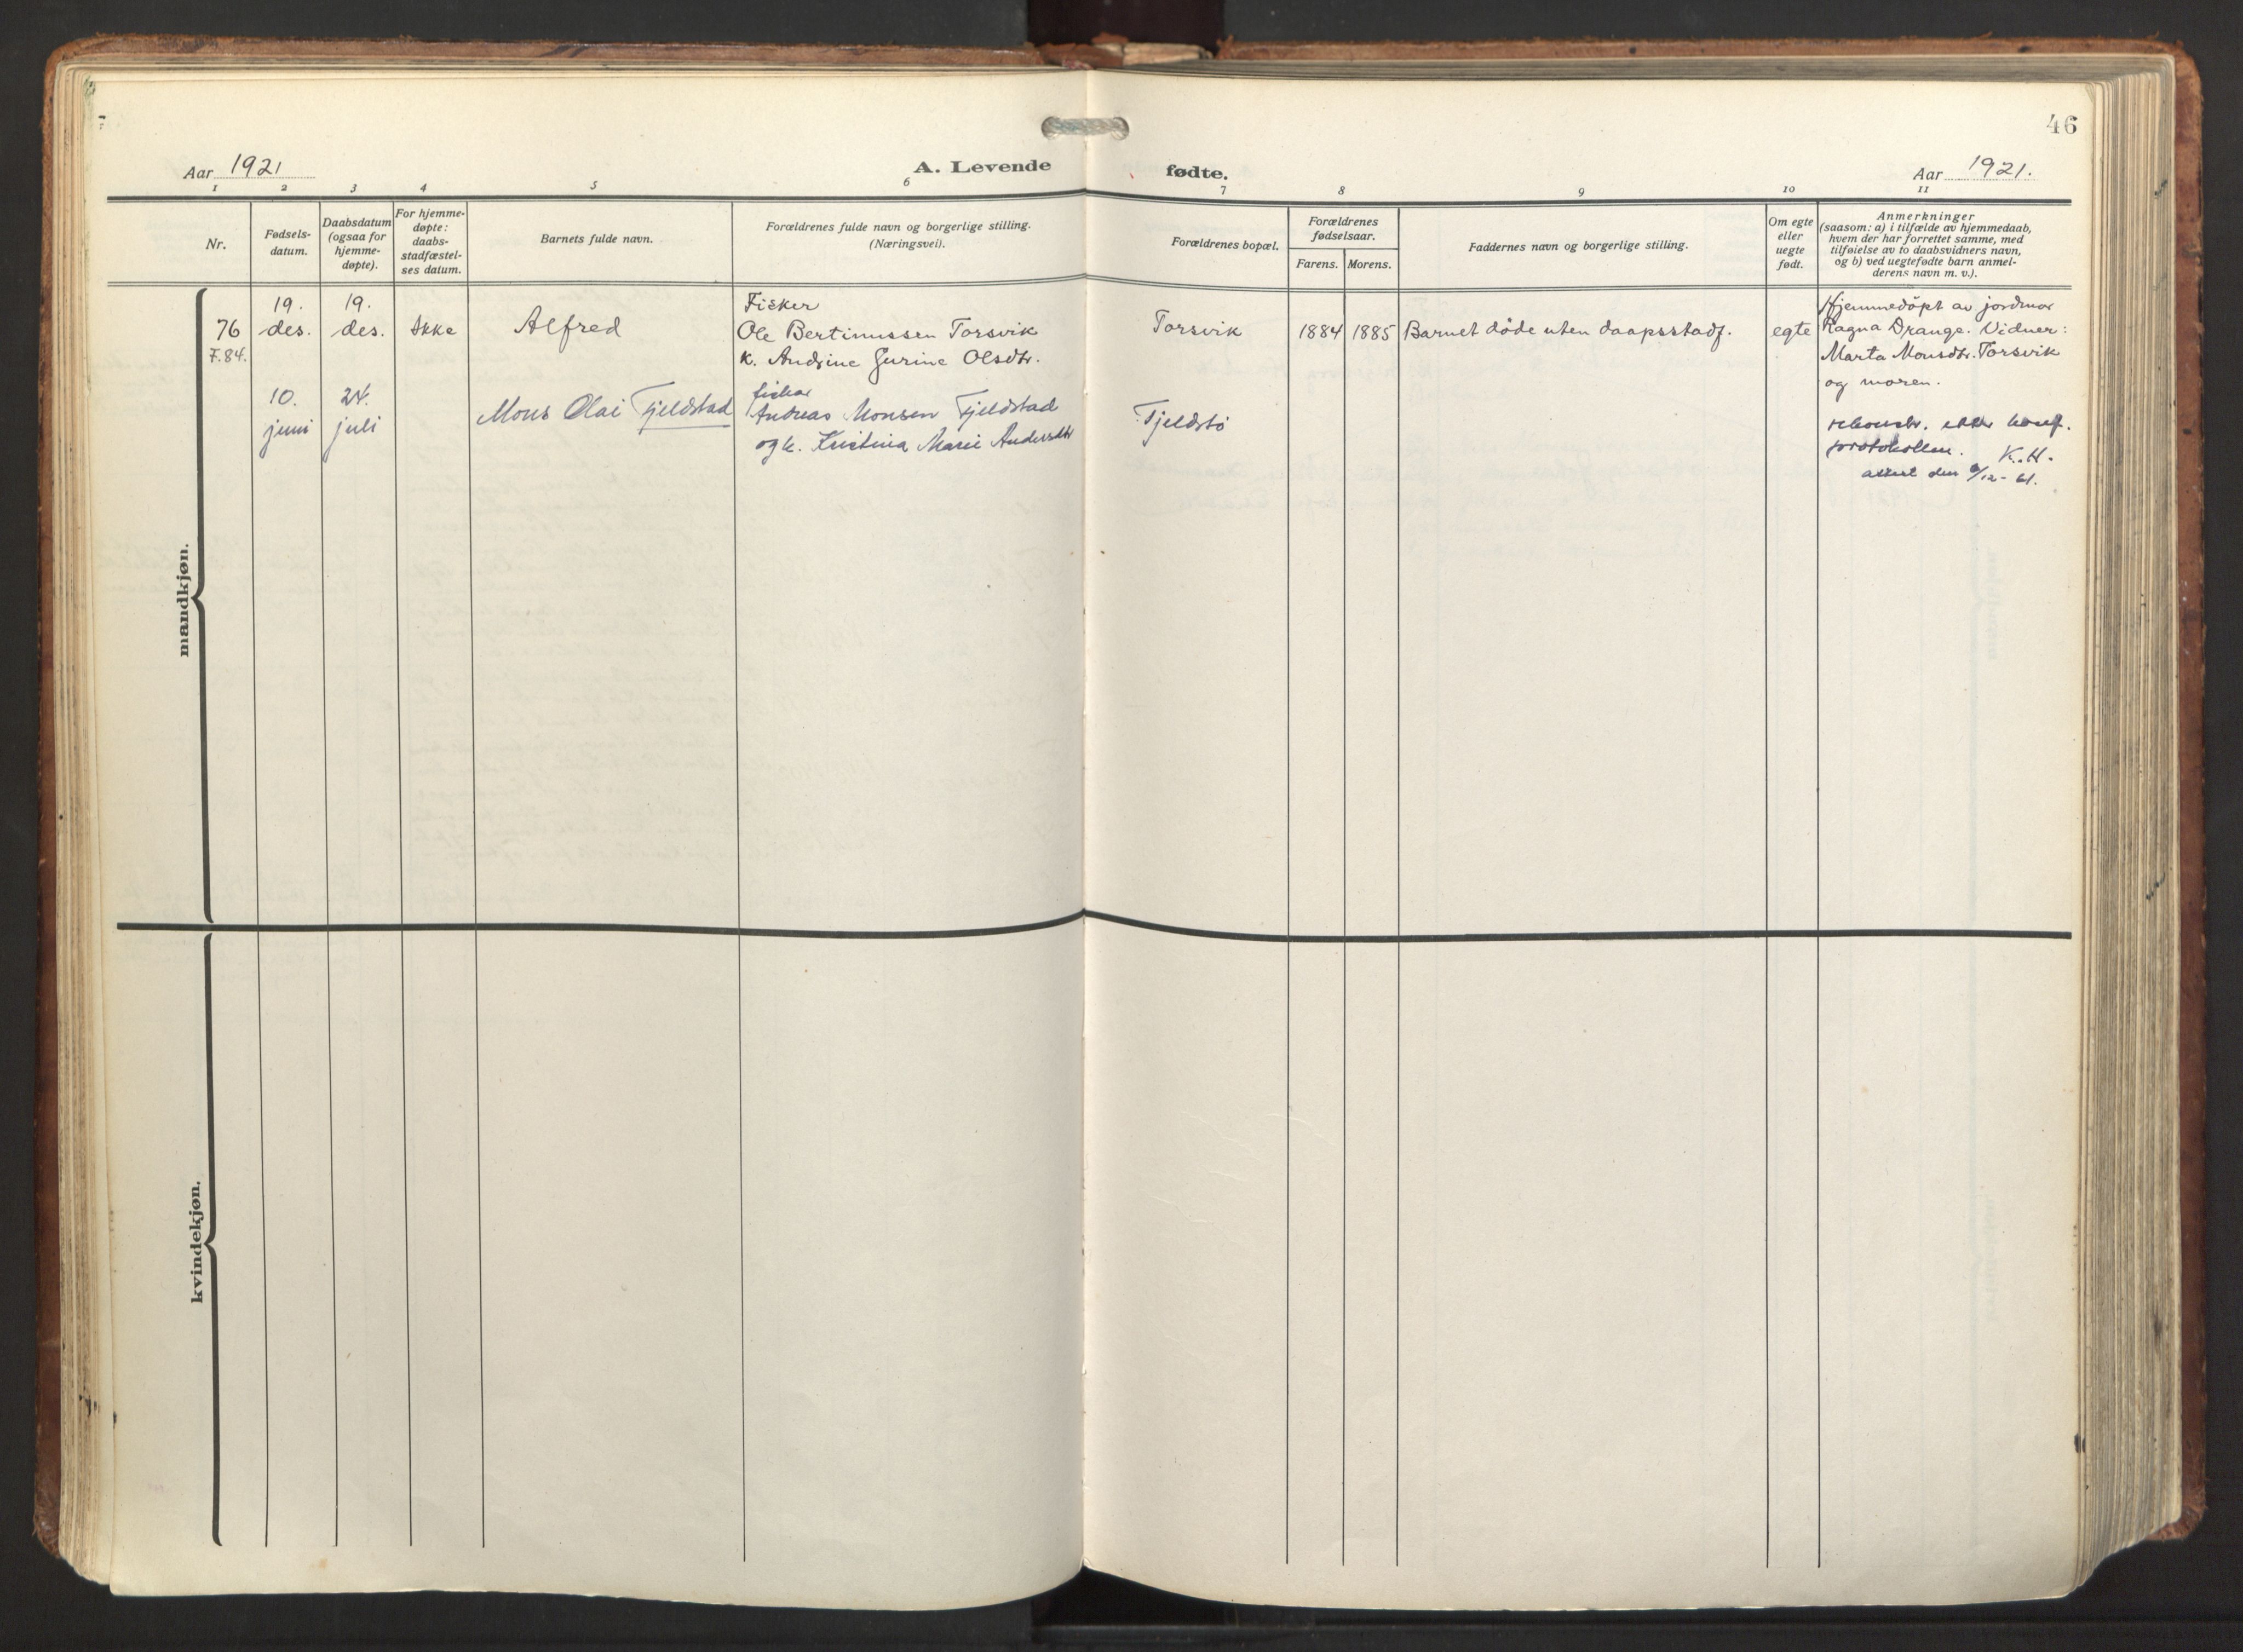 46
Aar 1921
A. Levende fødte.
Aar 1921.
1 2 3 4 5 6 7 8 9 10 11
Nr.
Fødsels-
datum.
Daabsdatum
(ogsaa for
hjemme-
døpte).
For hjemme-
døpte:
daabs-
stadfæstel-
ses datum.
Barnets fulde navn.
Forældrenes fulde navn og borgerlige stilling.
(Næringsvei).
Forældrenes bopæl.
Forældrenes
fødselsaar.
Farens. Morens.
Faddernes navn og borgerlige stilling.
Om egte
eller
uegte
født.
Anmerkninger
(saasom: a) i tilfælde av hjemmedaab,
hvem der har forrettet samme, med
tilføielse av to daabsvidners navn,
og b) ved uegtefødte barn anmel-
derens navn m. v.).
mandkjøn.
76
F. 84.
19.
des.
19.
des.
Ikke
Alfred
Fisker
Ole Bertinussen Torsvik
k. Andrine Gurine Olsdtr.
Torsvik
1884
1885
Barnet døde uten daapsstadf.
egte
Hjemmedöpt av jordmor
Ragna Drange. Vidner:
Marta Monsdtr. Torsvik
og moren.
10.
juni
24.
juli
Mons Olai Fjeldstad
fisker
Andreas Monsen Fjeldstad
og k. Kristina Marie Andersdtr
Fjeldstö
rekonstr. etter konf.
protokollen. K.H.
attest den /12-61.
kvindekjøn.